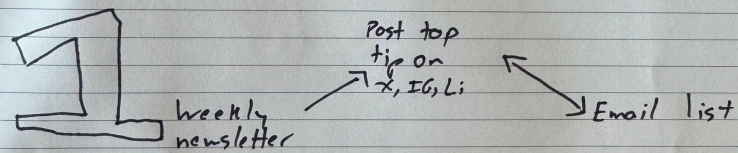 1
Weekly
newsletter
Post top
tip on
X, IG, Li
Email list